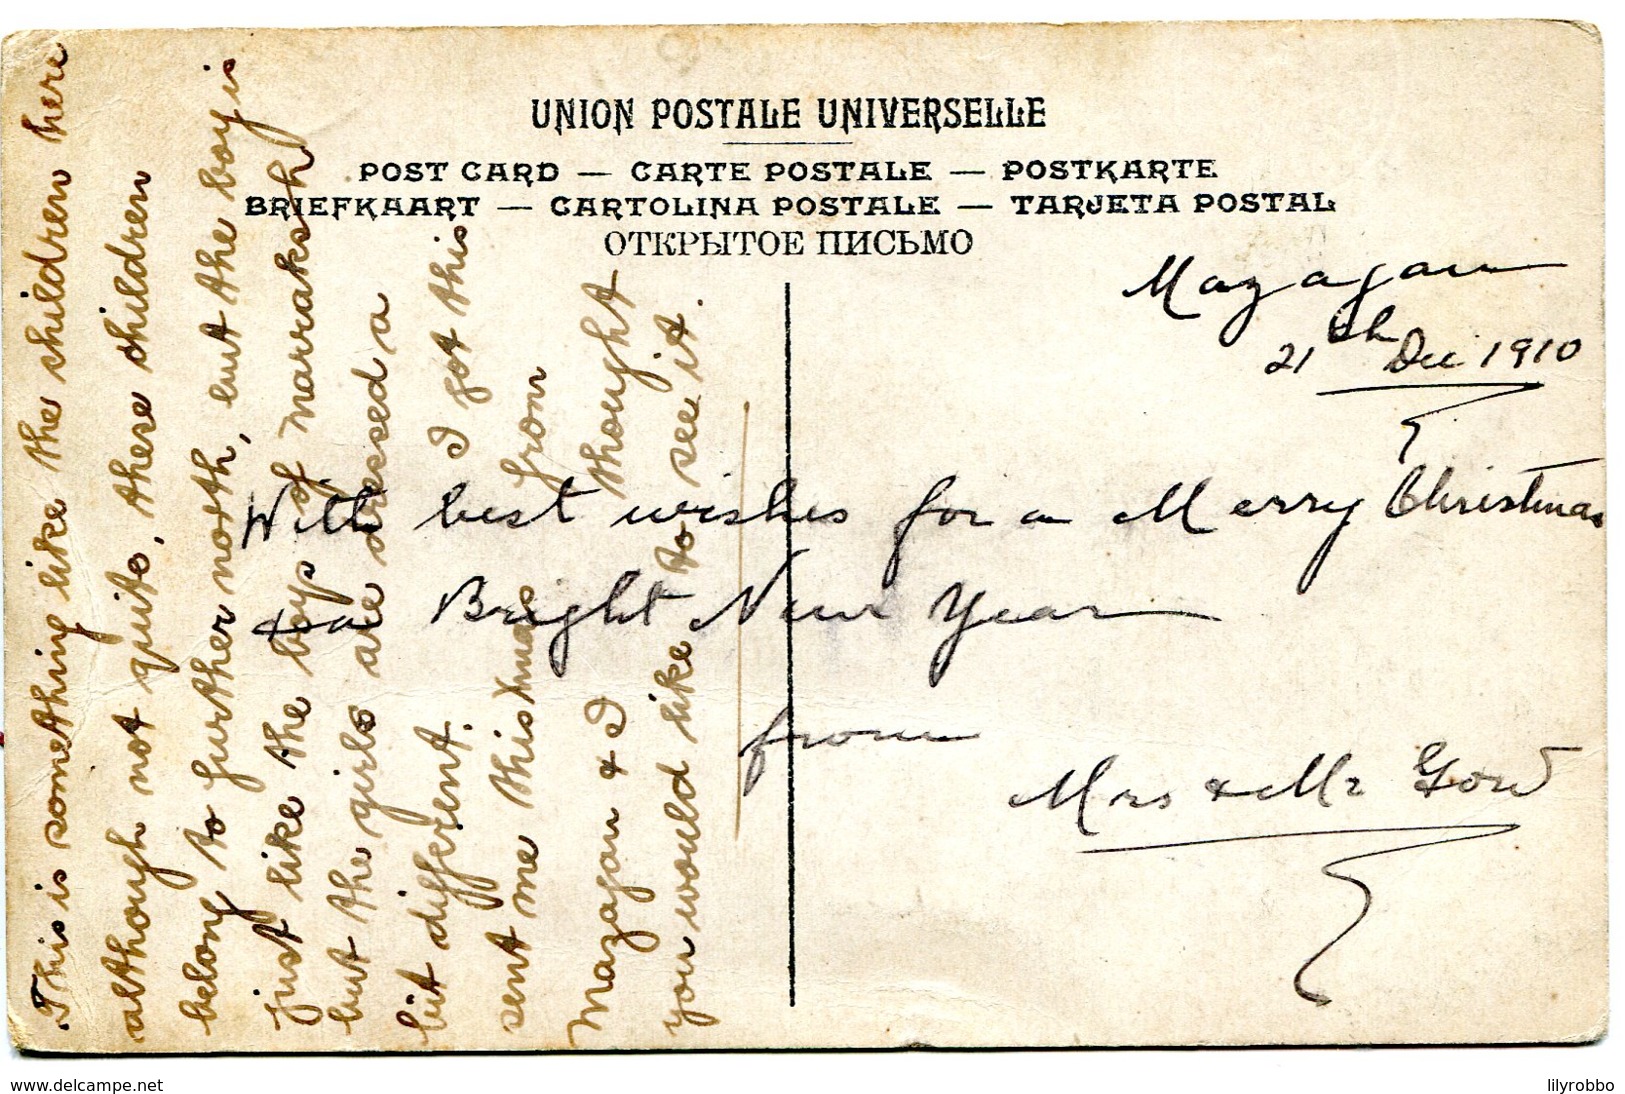 UNION POSTALE UNIVERSELLE
POST CARD — CARTE POSTALE — POSTKARTE
BRIEFKAART — CARTOLINA POSTALE — TARJETA POSTAL
ОТКРЫТОЕ ПИСЬМО
Mazagan
21th Dec 1910
With best wishes for a Merry Christmas
& a Bright New Year
from
Mrs & Mr Gow
This is something like the children here
although not quite, these children
belong to further north, but the boy is
just like the boys of Marraksh
but the girls are dressed a
bit different. I got this
sent me this Xmas from
Mazagan & I thought
you would like to see it.
www.delcampe.net
lilyrobbo